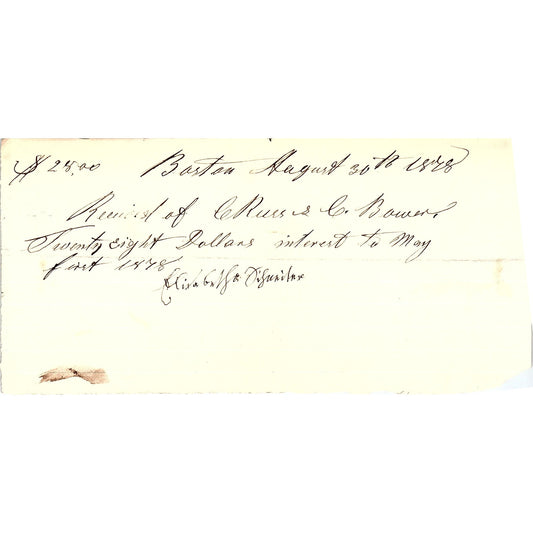 $ 28.00 Boston August 30th 1878
Received of C Russ & C. Bower
Twenty eight Dollars interest to May
first 1878
Elisabeth Schneiter